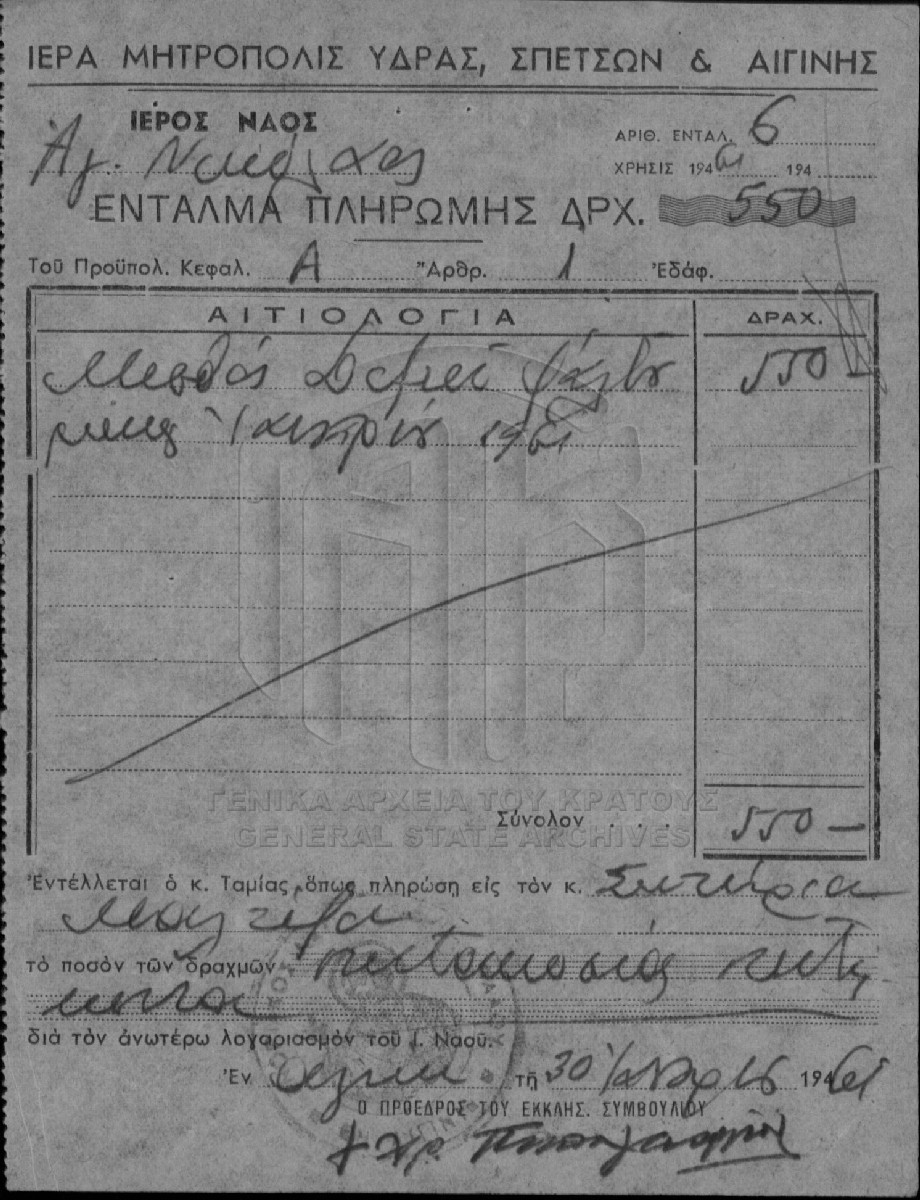 ΙΕΡΑ ΜΗΤΡΟΠΟΛΙΣ ΥΔΡΑΣ, ΣΠΕΤΣΩΝ & ΑΙΓΙΝΗΣ
ΙΕΡΟΣ ΝΑΟΣ
Ἁγ. Νικόλαος
ΑΡΙΘ. ΕΝΤΑΛ. 6
ΧΡΗΣΙΣ 19461 194
ΕΝΤΑΛΜΑ ΠΛΗΡΩΜΗΣ ΔΡΧ. 550
Τοῦ Προϋπολ. Κεφαλ. Α Ἄρθρ. 1 Ἐδάφ.
ΑΙΤΙΟΛΟΓΙΑ ΔΡΑΧ.
Μισθός ψάλτου 550 -
Ἰανουαρίου 1961
ΓΕΝΙΚΑ ΑΡΧΕΙΑ ΤΟΥ ΚΡΑΤΟΥΣ
GENERAL STATE ARCHIVES
Σύνολον . . . 550 —
Ἐντέλλεται ὁ κ. Ταμίας, ὅπως πληρώσῃ εἰς τὸν κ. Σωτήριον
τὸ ποσὸν τῶν δραχμῶν πεντακοσίας πεντή
κοντα
διὰ τὸν ἀνωτέρω λογαριασμὸν τοῦ Ἰ. Ναοῦ.
Ἐν Αἰγίνῃ τῇ 30 Ἰανουαρίου 19461
Ο ΠΡΟΕΔΡΟΣ ΤΟΥ ΕΚΚΛΗΣ. ΣΥΜΒΟΥΛΙΟΥ